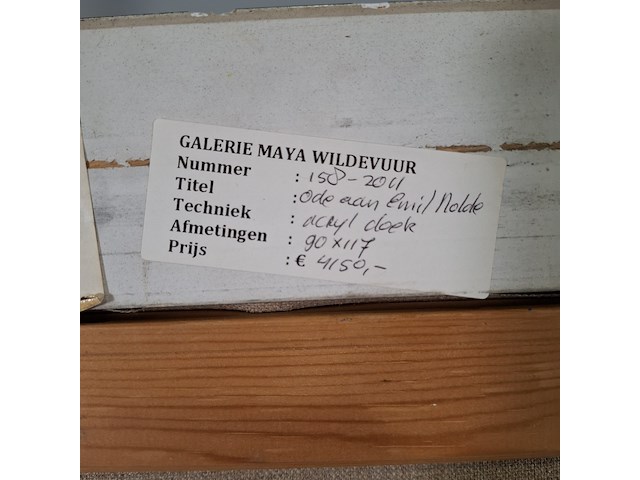 GALERIE MAYA WILDEVUUR
Nummer : 158-2011
Titel : Ode aan Emil Nolde
Techniek : acryl doek
Afmetingen : 90 x 117
Prijs : € 4150,-